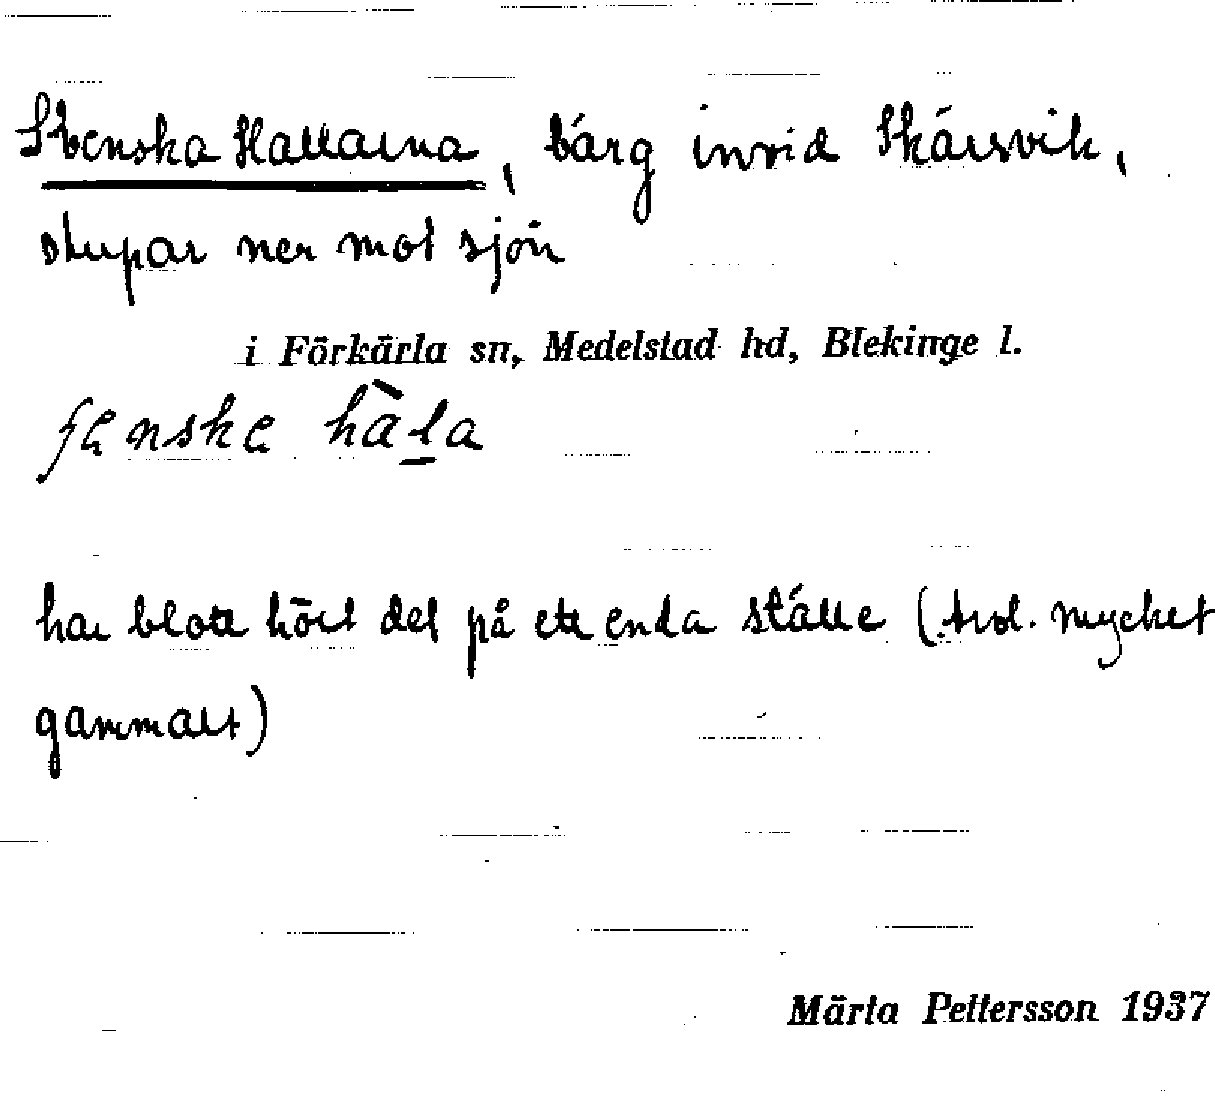 Svenska Hallarna, bärg invid Skärsvik,
stupar ner mot sjön
i Förkärla sn, Medelstad hd, Blekinge l.
har blott hört det på ett enda ställe (trol. mycket
gammalt)
Märta Pettersson 1937